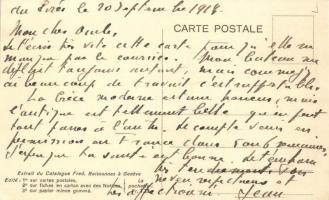 du Pirée le 20 Septembre 1918.
CARTE POSTALE
Mon cher Oncle,
Je t'écris très vite cette carte pour qu'elle ne
manque pas le courrier. Mon bateau me
déplait toujours autant, mais comme j'ai
beaucoup de travail c'est supportable.
La Grèce moderne est une horreur, mais
l'antique est tellement belle que ça fait
tout passer à l'autre. Je compte venir en
permission en France dans
J'espère que ta santé est bonne.
respectueux et
très affectionné. Jean
Extrait du Catalogue Fred. Boissonnas à Genève
Edité: 1° sur cartes postales,
2° sur fiches en carton avec des Notices,
3° sur papier mince gommé.
pochette